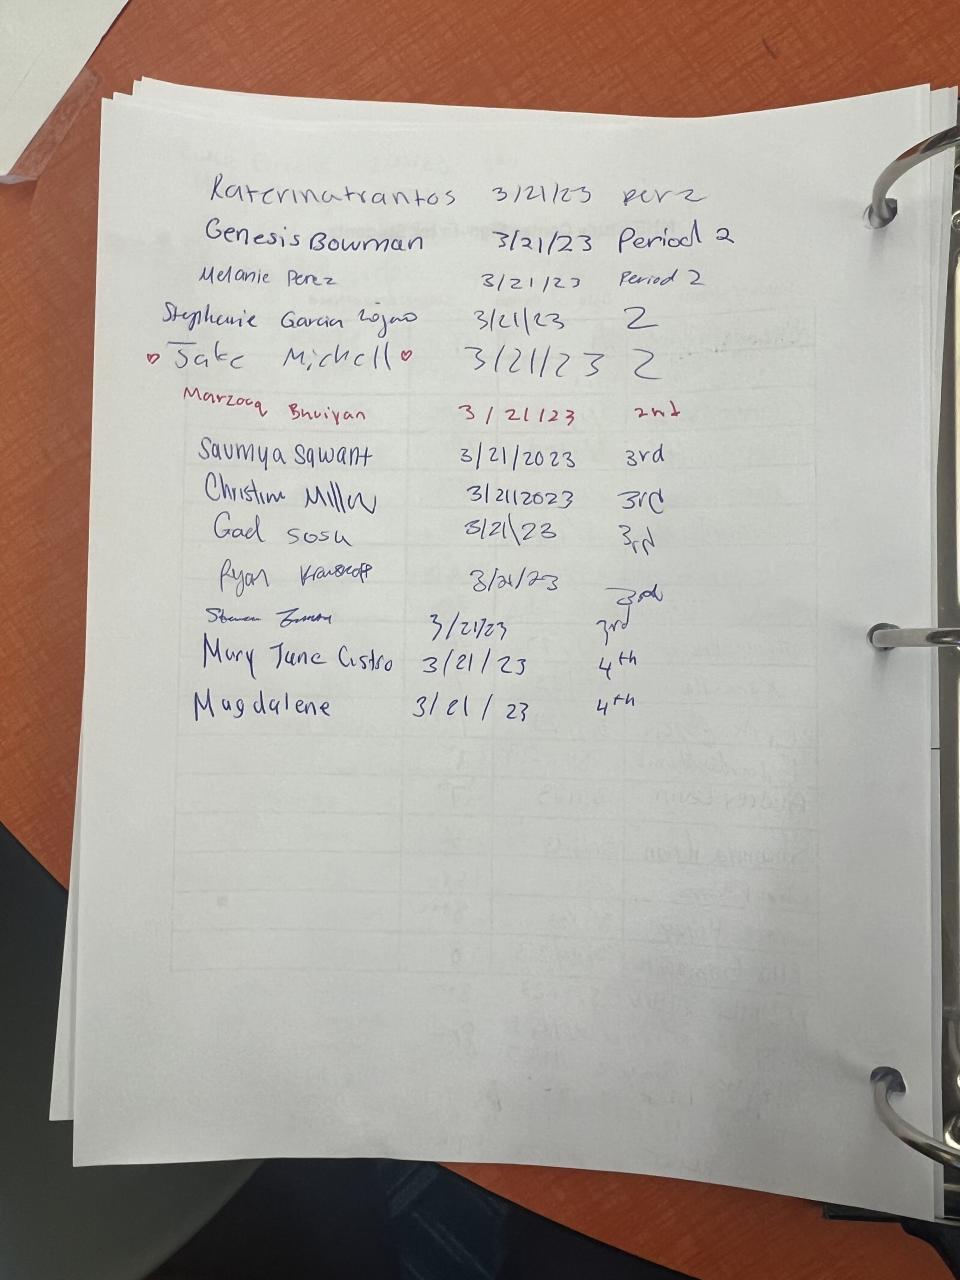 Katerinatrantos 3/21/23 per 2
Genesis Bowman 3/21/23 Period 2
Melanie Perez 3/21/23 Period 2
Stephanie Garcia Rojano 3/21/23 2
♡ Jake Michell ♡ 3/21/23 2
Marzooq Bhuiyan 3/21/23 2nd
Saumya Sawant 3/21/2023 3rd
Christine Miller 3/21/2023 3rd
Gad Sosu 3/21/23 3rd
Ryan 3/21/23 3rd
3/21/23 3rd
Mary Jane Castro 3/21/23 4th
Magdalene 3/21/23 4th